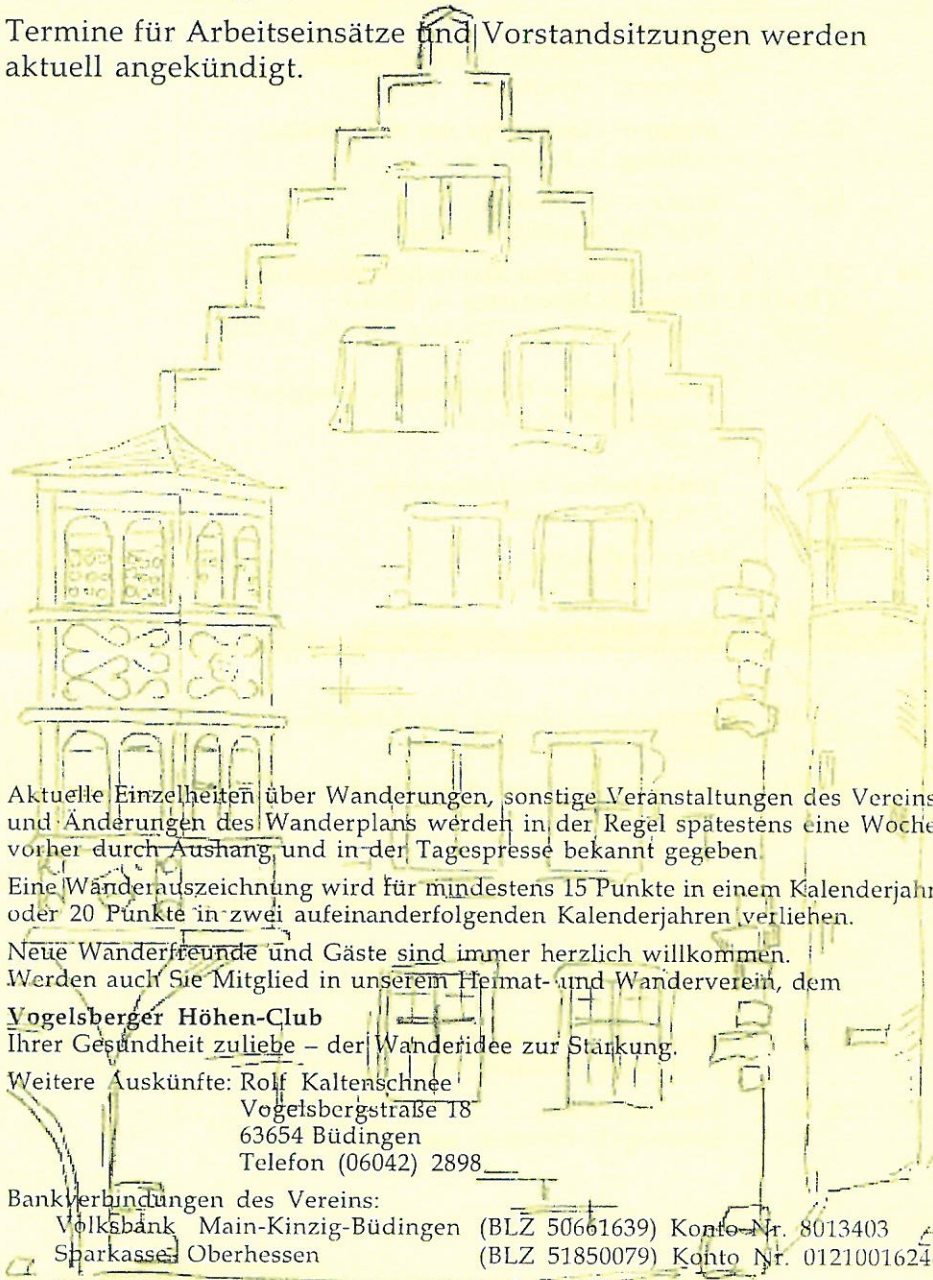 Termine für Arbeitseinsätze und Vorstandsitzungen werden
aktuell angekündigt.
Aktuelle Einzelheiten über Wanderungen, sonstige Veranstaltungen des Vereins
und Änderungen des Wanderplans werden in der Regel spätestens eine Woche
vorher durch Aushang und in der Tagespresse bekannt gegeben.
Eine Wanderauszeichnung wird für mindestens 15 Punkte in einem Kalenderjahr
oder 20 Punkte in zwei aufeinanderfolgenden Kalenderjahren verliehen.
Neue Wanderfreunde und Gäste sind immer herzlich willkommen.
Werden auch Sie Mitglied in unserem Heimat- und Wanderverein, dem
Vogelsberger Höhen-Club
Ihrer Gesundheit zuliebe – der Wanderidee zur Stärkung.
Weitere Auskünfte: Rolf Kaltenschnee
Vogelsbergstraße 18
63654 Büdingen
Telefon (06042) 2898
Bankverbindungen des Vereins:
Volksbank Main-Kinzig-Büdingen (BLZ 50661639) Konto-Nr. 8013403
Sparkasse Oberhessen (BLZ 51850079) Konto Nr. 0121001624